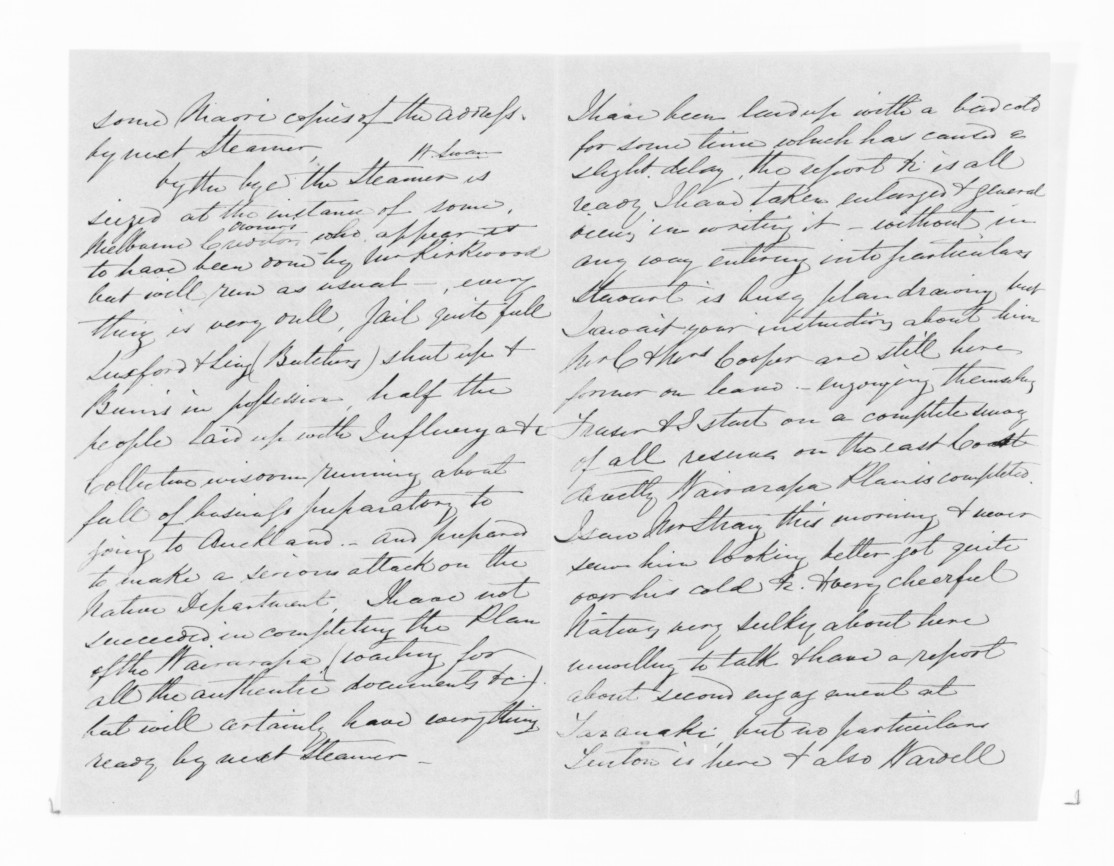 some Maori copies of the address.
by next Steamer,
W. Swan
by the bye the Steamer is
seized at the instance of some,
owners
Melbourne Creditors who appear is
to have been done by Mr Kirkwood
but will run as usual —, every
thing is very dull, Jail quite full
Luxford & Ling (Butchers) shut up &
in possession, half the
people laid up with Influenza &c
Collective wisdom running about
full of business preparatory to
going to Auckland — and prepared
to make a serious attack on the
Native Department, I have not
succeeded in completing the Plan
of the Wairarapa (waiting for
all the authentic documents &c).
but will certainly have everything
ready by next Steamer —
I have been laid up with a bad cold
for some time which has caused a
slight delay, the report &c is all
ready I have taken enlarged & general
views in writing it — without in
any way entering into particulars
Stewart is busy plan drawing but
I await your instructions about him
Mr C & Mrs Cooper are still here
former on leave — enjoying themselves
Fraser & I start on a complete
of all reserves on the east Coast
directly Wairarapa Plan is completed.
I saw Mr Strang this morning & never
seen him looking better got quite
over his cold &c. & very cheerful
Natives very sulky about here
unwilling to talk & have a report
about second engagement at
Taranaki, but no particulars
is here & also Wardell